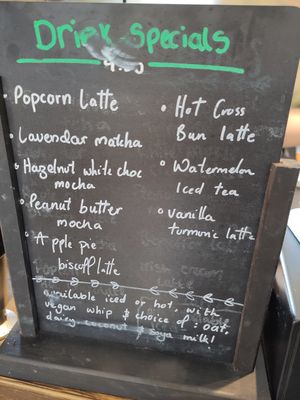 Drink Specials
Popcorn Latte
Lavendar matcha
Hazelnut white choc
mocha
Peanut butter
mocha
Apple pie
biscoff latte
Hot Cross
Bun latte
Watermelon
Iced tea
vanilla
turmeric latte
available iced or hot, with
vegan whip & choice of : oat,
dairy, coconut & soya milk!